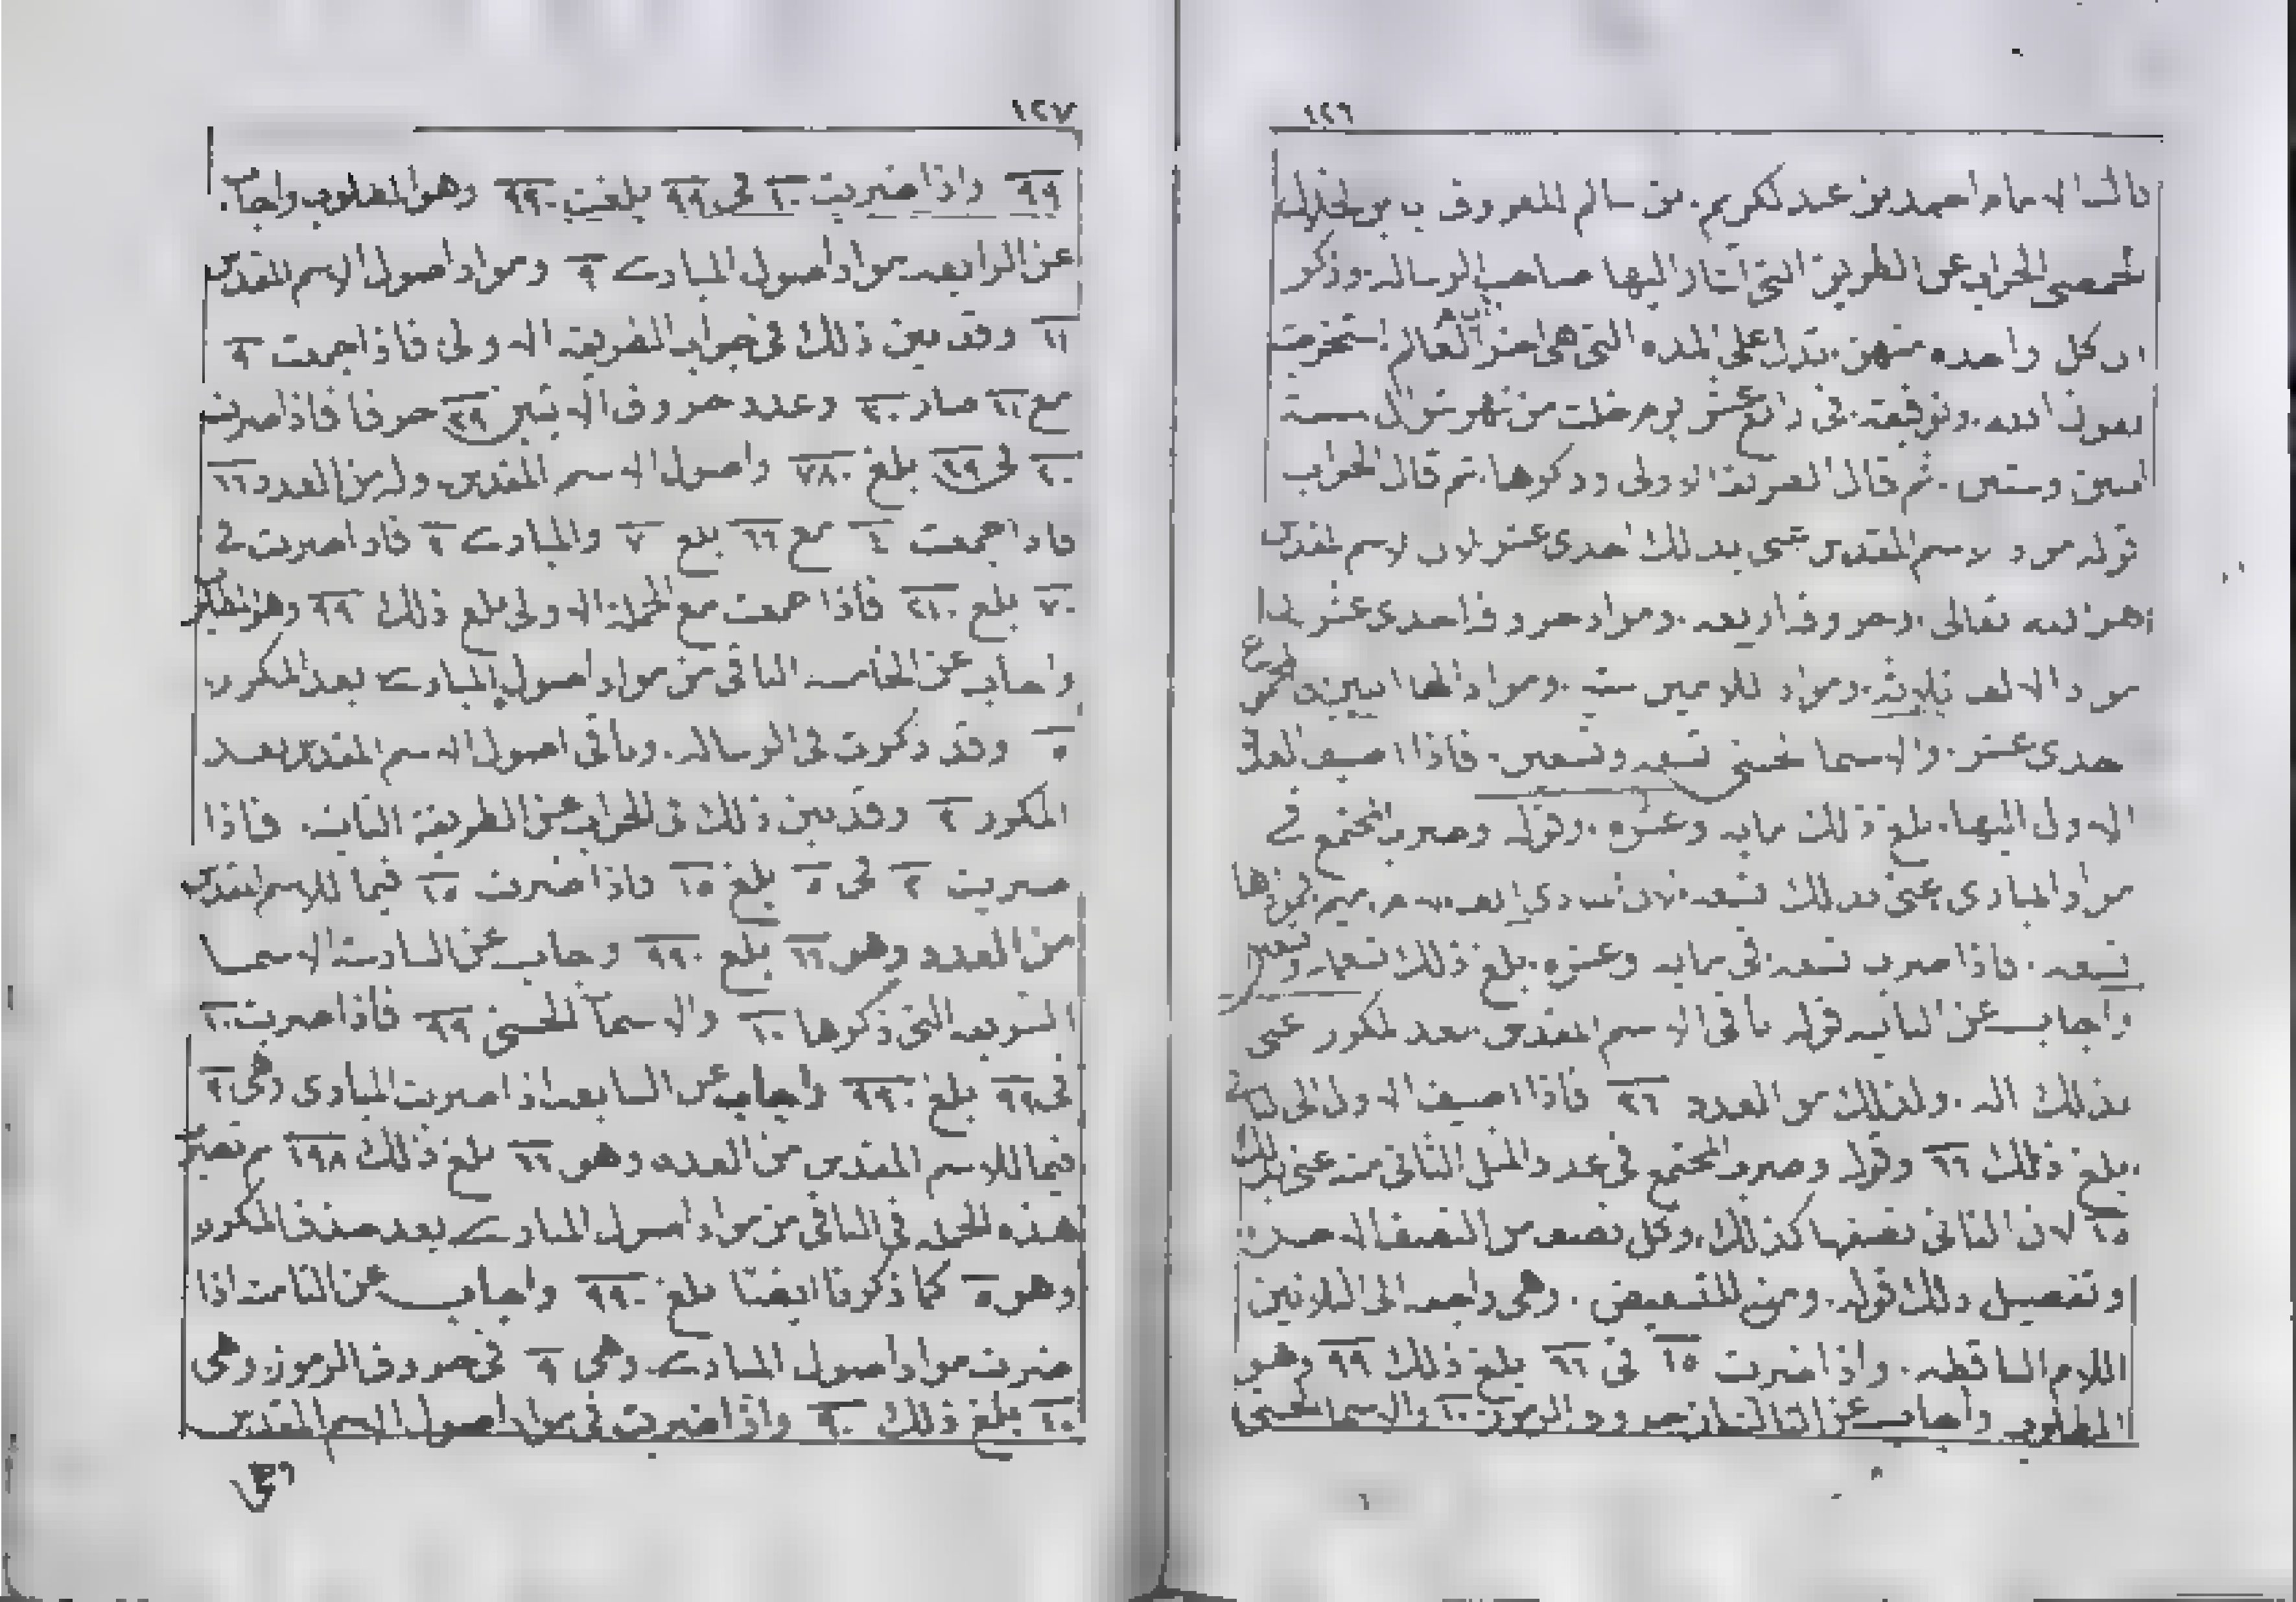 ١٢٦
قالـ الامام احمد بن عبد لكريم. بن سالم المعروف ب بن لخلال
لحمصى الجواب عن الطريق التى اشار اليها صاحب الرساله. وذكر
ان كل واحده منهن. تدل على المده التى هى اخر العالم استخرجت
بعون الله. وتوفيقه. فى رابع عشر يوم خلت من شهر شوال سنة
وستين. ثم قال الطريقة الاولى وذكرها. ثم قال الجواب
قوله مواد الاسم المقدس عنى بذلك احدى عشر لان الاسم المقدس
هو لله تعالى. وحروفه اربعه. ومواد حروفه احدى عشر
مواد الالف ثلاثه. ومواد اللامين ستة. ومواد الها اثنين
حدى عشر. والاسما لحسنى تسعه وتسعين. فاذا اضيف العدد
الاول اليها. بلغ ذلك مايه وعشره. وقوله وضرب المجتمع فى
مواد المبادى عنى بذلك تسعه. لان المبادى الف. لام. ميم. موادها
تسعه. فاذا ضرب تسعه. فى مايه وعشره. بلغ ذلك تسعمايه وتسعين
واجاب عن الثانيه قوله باقى الاسم المقدس. بعد لمكرر عنى
بذلك اله. ولذلك من العدد ٣٦ فاذا اضيف الاول الى
بلغ ذلك ٦٦ وقوله وضرب المجتمع فى عدد المثل الثانى منه عنى بذلك
١٥ لان الثانى نصفها كذلك. وكل نصف من النصف له
وتفصيل ذلك قوله. ومن للتبعيض. وهى راجعه الى الثلاثين
اللام الساقطه. واذا ضربت ١٥ فى ٦٦ بلغ ذلك ٩٩٠ وهو
المطلوب واجاب عن الثالثة حروف الرموز ١٠ والاسما لحسنى
١٢٧
٩٩ واذا ضربت ١٠ فى ٩٩ بلغت ٩٩٠ وهو المطلوب واجاب
عن الرابعه مواد اصول المبادى ٩ ومواد اصول الاسم المقدس
١١ وقد بين ذلك فى جواب الطريقه الاولى. فاذا جمعت ٩
مع ١١ صار ٢٠ وعدد حروف الا ٣٩ حرفا فاذا ضربت
٢٠ فى ٣٩ بلغ ٧٨٠ واصول الاسم المقدس وله من العدد ٦٦
فاذا جمعت ٤ مع ٦٦ بلغ ٧٠ والمبادى ٣ فاذا ضربت ٣ فى
٧٠ بلغ ٢١٠ فاذا جمعت مع الجمله الاولى بلغ ذلك ٩٩٠ وهو المطلوب
واجاب عن الخامسه الباقى من مواد اصول المبادى بعد المكرر
٥ وقد ذكرت فى الرساله. وباقى اصول الاسم المقدس بعد
المكرر ٣ وقد بين ذلك فى الجواب عن الطريقة الثانيه. فاذا
ضربت ٣ فى ٥ بلغ ١٥ فاذا ضربت ١٥ فيما للاسم المقدس
من العدد وهو ٦٦ بلغ ٩٩٠ وجاب عن السادسة الاسما
الشريفه التى ذكرها ١٠ والاسما الحسنى ٩٩ فاذا ضربت ١٠
فى ٩٩ بلغ ٩٩٠ واجاب عن السابعه اذا ضربت المبادى وهى ٣
فيما للاسم المقدس من العدد وهو ٦٦ بلغ ذلك ١٩٨ ثم تضرب
هذه الجمله فى الباقى من مواد اصول المبادى بعد حذف المكرر
وهو ٥ كما ذكرنا ايضا بلغ ٩٩٠ واجاب عن الثامنة اذا
ضربت مواد اصول المبادى وهى ٩ فى حروف الرموز. وهى
١٠ بلغ ذلك ٩٠ واذا ضربت فى مواد اصول الاسم المقدس
وهى